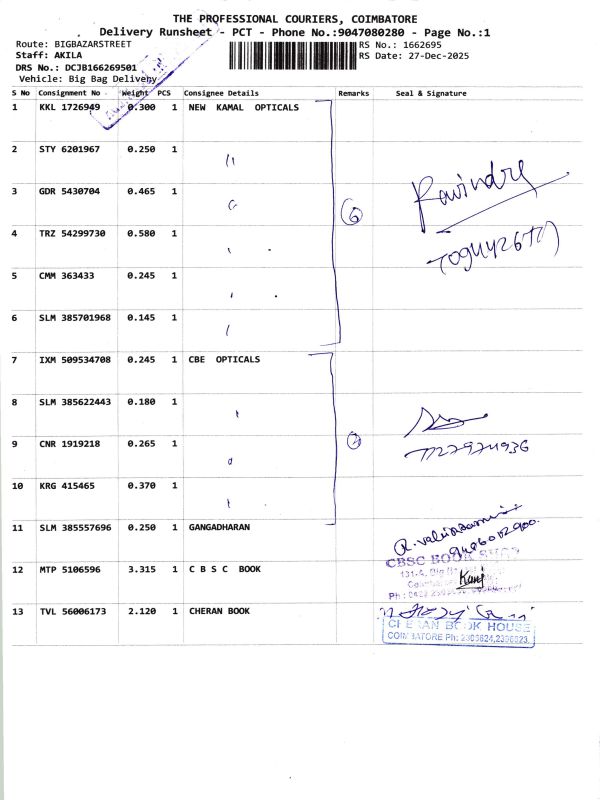 THE PROFESSIONAL COURIERS, COIMBATORE
Delivery Runsheet - PCT - Phone No.:9047080280 - Page No.:1
Route: BIGBAZARSTREET
RS No.: 1662695
Staff: AKILA
RS Date: 27-Dec-2025
DRS No.: DCJB166269501
Vehicle: Big Bag Delivery
S No Consignment No Weight PCS Consignee Details Remarks Seal & Signature
1 KKL 1726949 0.300 1 NEW KAMAL OPTICALS
2 STY 6201967 0.250 1
3 GDR 5430704 0.465 1
6
Ravindra
4 TRZ 54299730 0.580 1
5 CMM 363433 0.245 1
6 SLM 385701968 0.145 1
7 IXM 509534708 0.245 1 CBE OPTICALS
8 SLM 385622443 0.180 1
9 CNR 1919218 0.265 1
10 KRG 415465 0.370 1
11 SLM 385557696 0.250 1 GANGADHARAN
9486012900.
12 MTP 5106596 3.315 1 C B S C BOOK
CBSC BOOK SHOP
13 TVL 56006173 2.120 1 CHERAN BOOK
CHERAN BOOK HOUSE
COIMBATORE Ph: